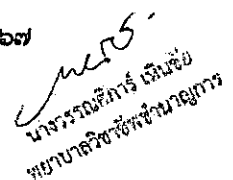 ๖๗
นางวรรณศิการ์ เทินชัย
พยาบาลวิชาชีพชำนาญการ